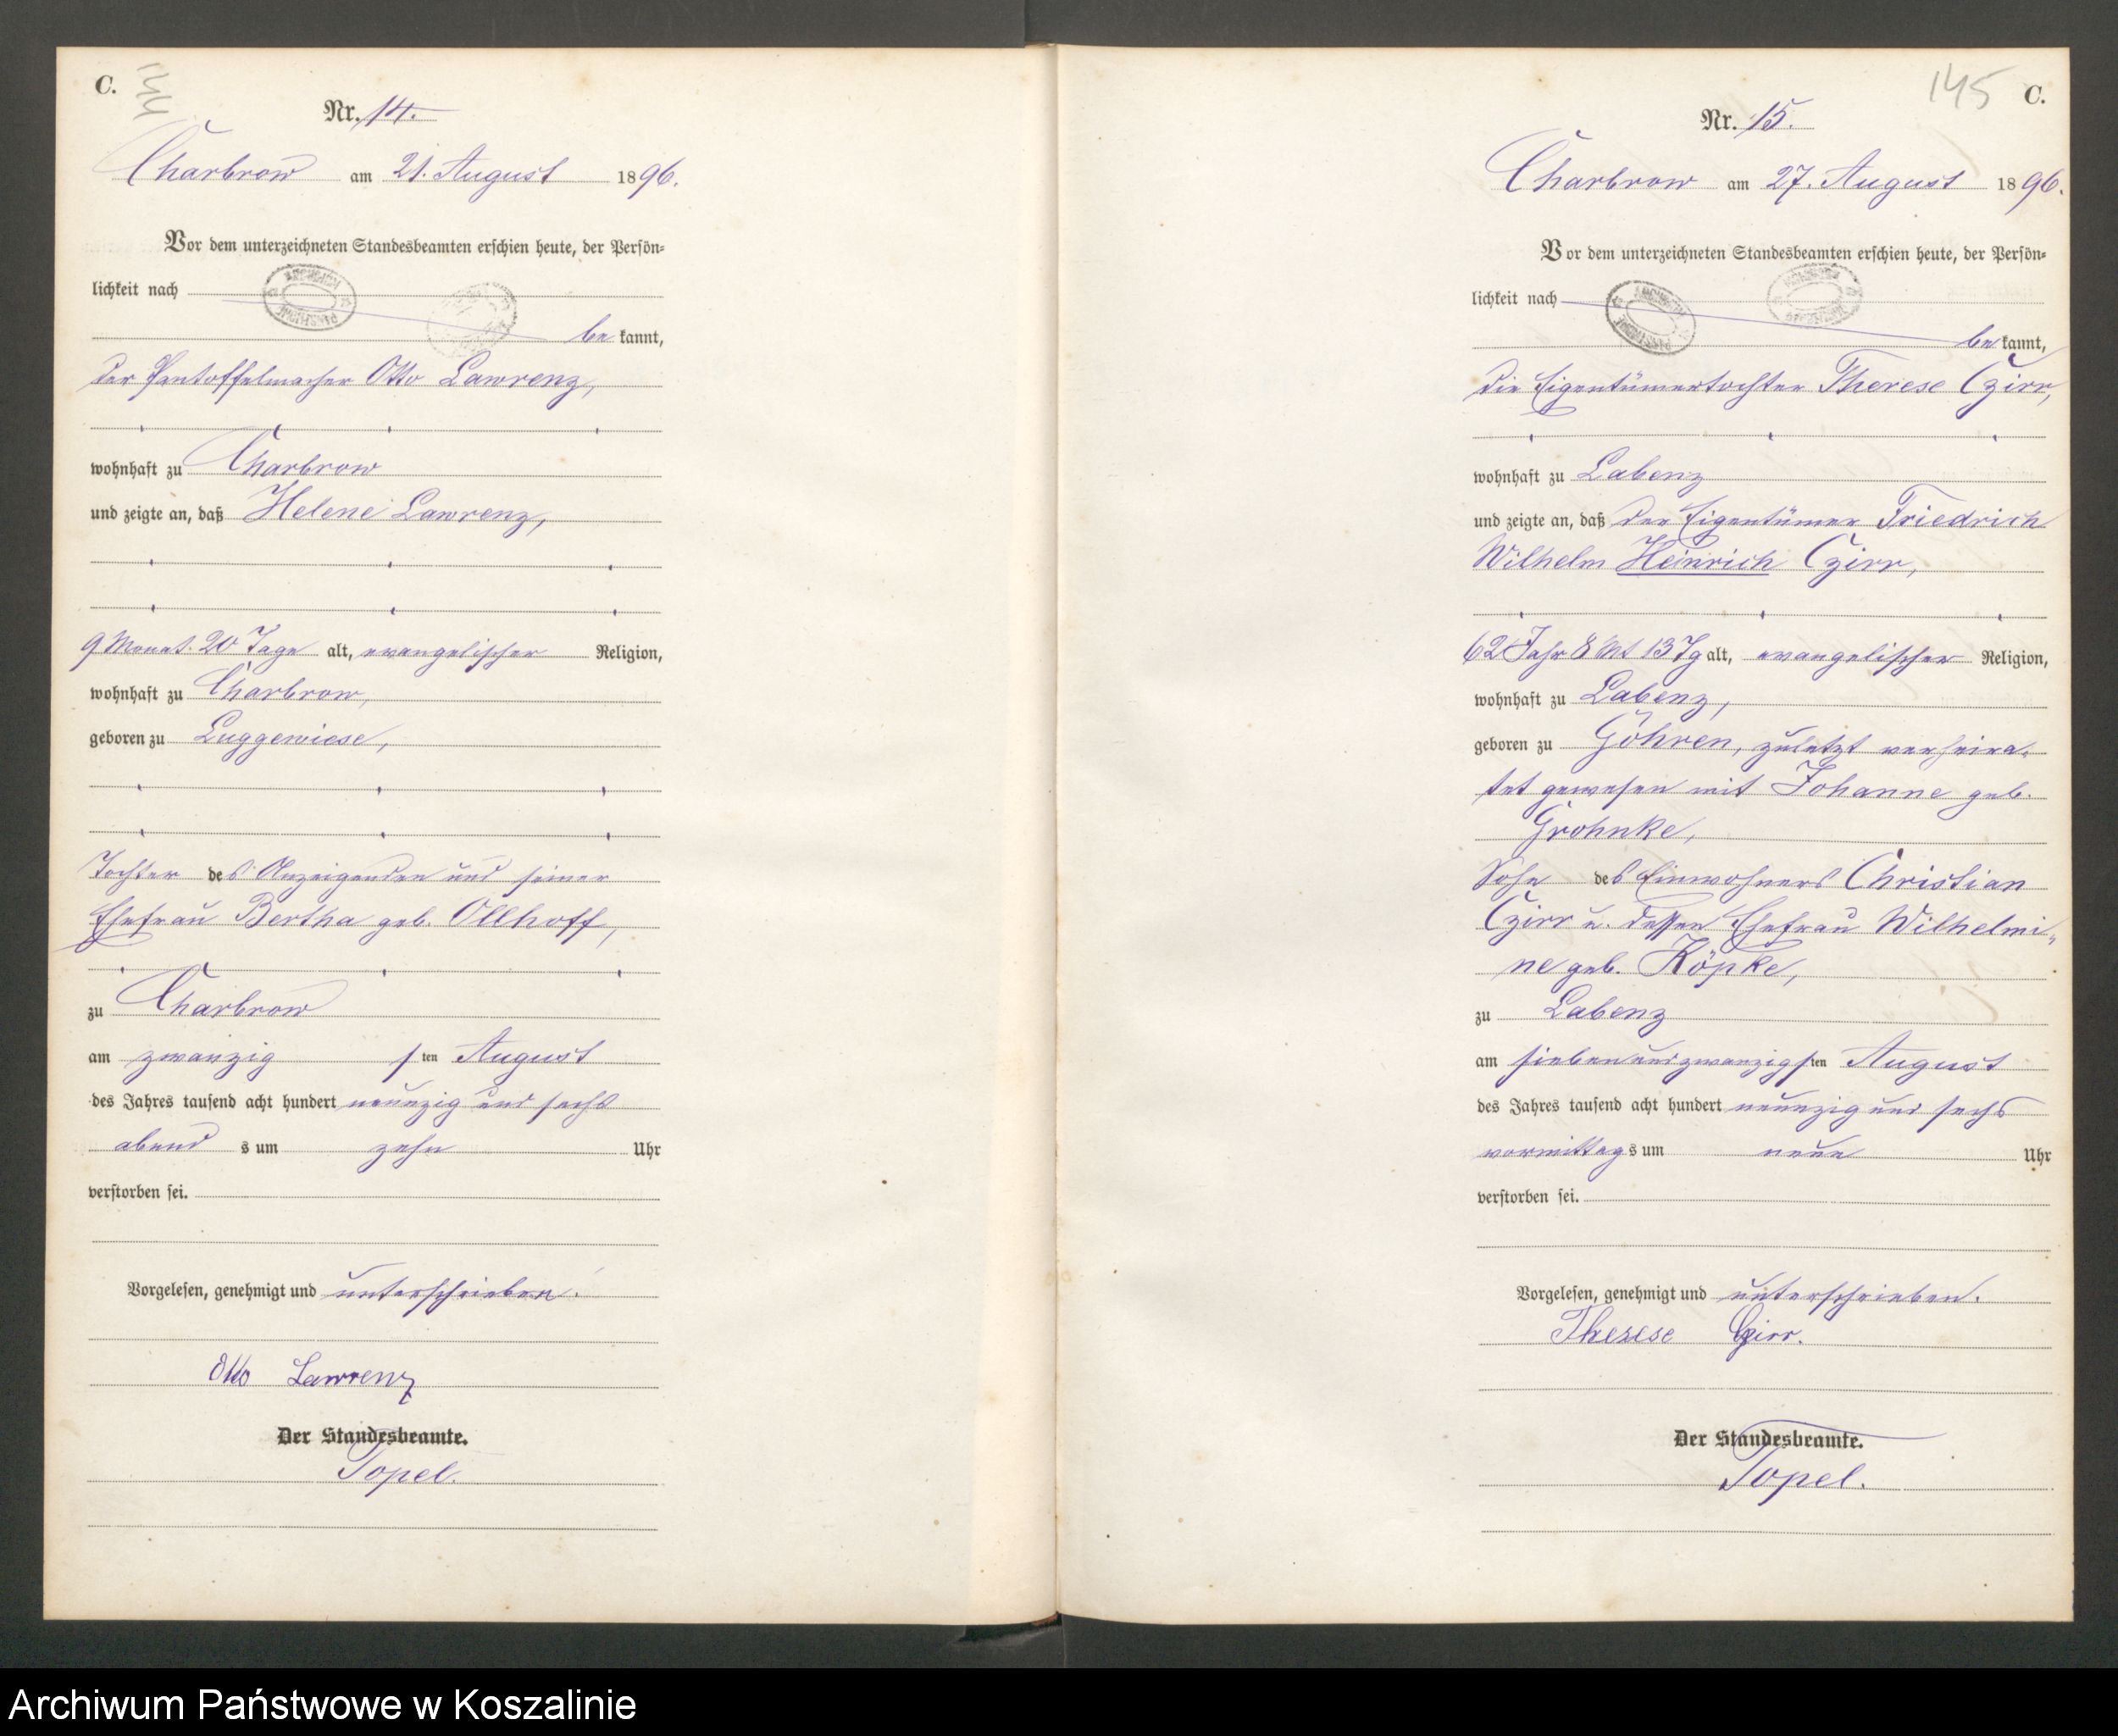 C.
144
Nr. 14.
Charbrow am 21. August 1896.
Vor dem unterzeichneten Standesbeamten erschien heute, der Persön-
lichkeit nach
be kannt,
der Pantoffelmacher Otto Lawrenz,
wohnhaft zu Charbrow
und zeigte an, daß Helene Lawrenz,
9 Monat 20 Tage alt, evangelischer Religion,
wohnhaft zu Charbrow,
geboren zu Luggewiese,
Tochter des Anzeigenden und seiner
Ehefrau Bertha geb. Ollhoff,
zu Charbrow
am zwanzigsten August
des Jahres tausend acht hundert neunzig und sechs
abends um zehn Uhr
verstorben sei.
Vorgelesen, genehmigt und unterschrieben.
Otto Lawrenz
Der Standesbeamte.
Topel.
145
C.
Nr. 15.
Charbrow am 27. August 1896.
Vor dem unterzeichneten Standesbeamten erschien heute, der Persön-
lichkeit nach
be kannt,
die Eigentümertochter Therese Czirr,
wohnhaft zu Labenz
und zeigte an, daß der Eigentümer Friedrich
Wilhelm Heinrich Czirr,
62 Jahr 8 Mt 13 Tg alt, evangelischer Religion,
wohnhaft zu Labenz,
geboren zu Göhren, zuletzt verheira-
tet gewesen mit Johanne geb.
Grohnke,
Sohn des Einwohners Christian
Czirr u. dessen Ehefrau Wilhelmi-
ne geb. Köpke,
zu Labenz
am siebenundzwanzigsten August
des Jahres tausend acht hundert neunzig und sechs
vormittags um neun Uhr
verstorben sei.
Vorgelesen, genehmigt und unterschrieben.
Therese Czirr.
Der Standesbeamte.
Topel.
Archiwum Państwowe w Koszalinie